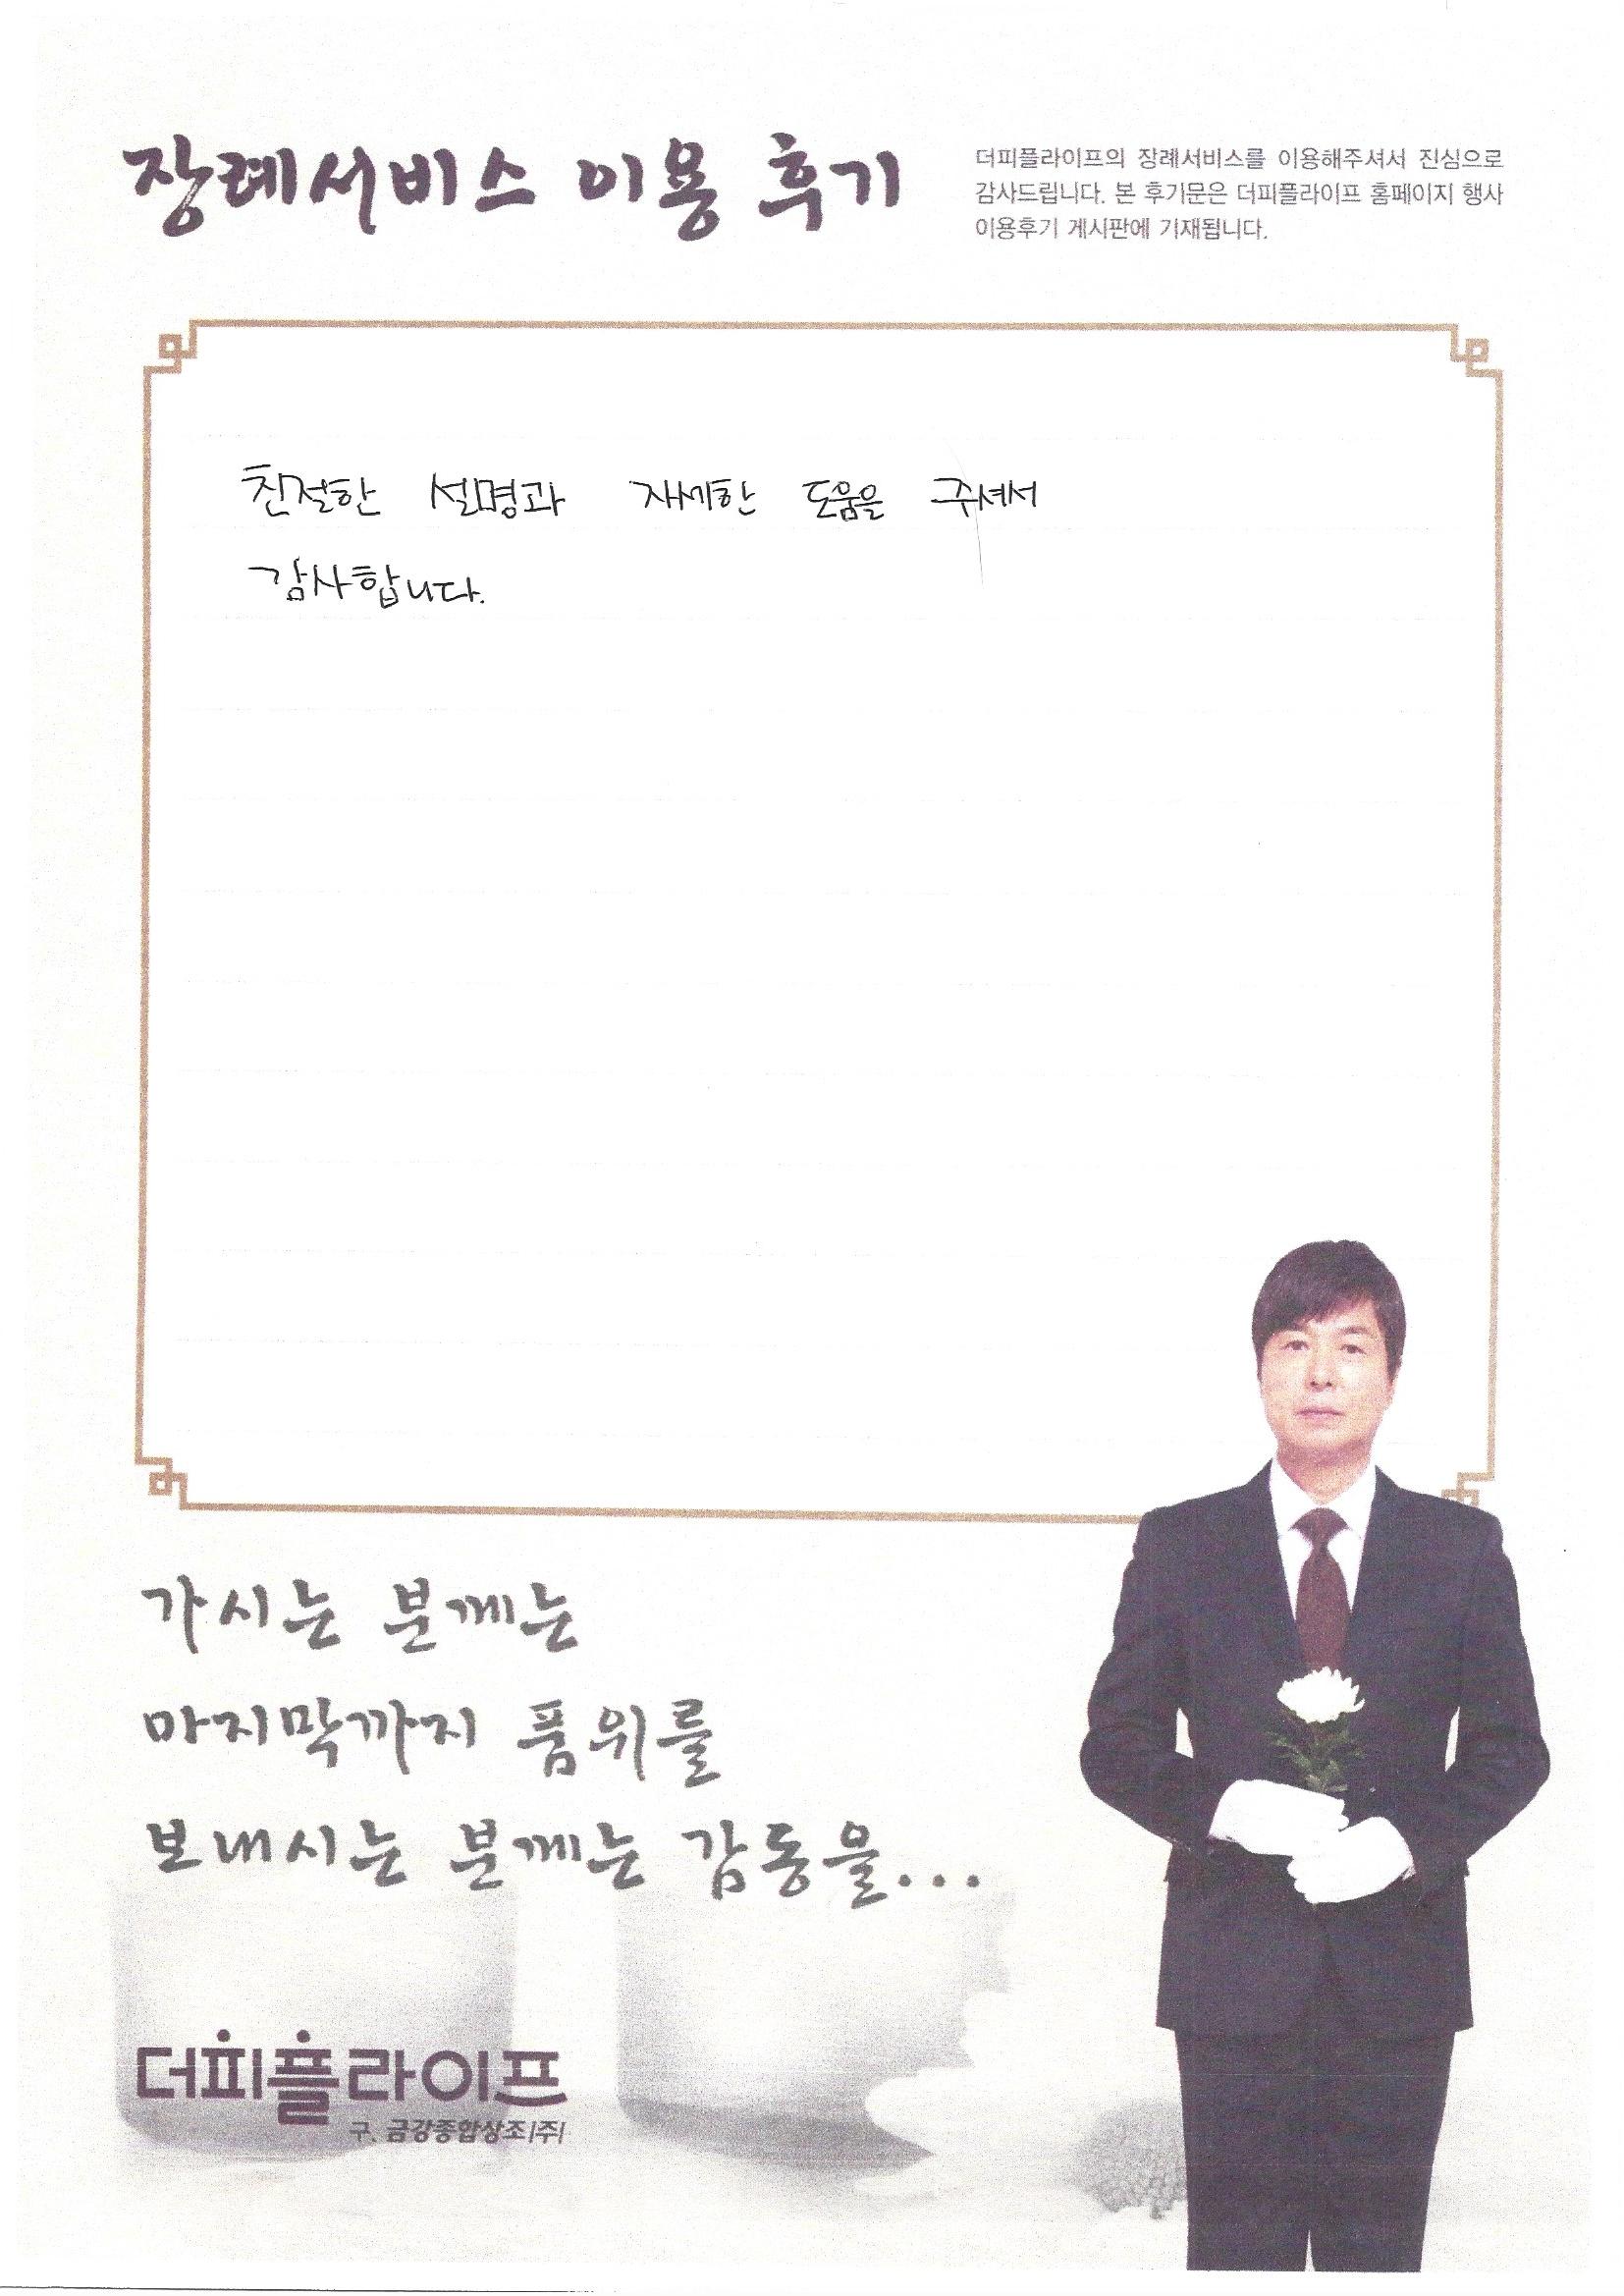 장례서비스 이용 후기
더피플라이프의 장례서비스를 이용해주셔서 진심으로
감사드립니다. 본 후기문은 더피플라이프 홈페이지 행사
이용후기 게시판에 기재됩니다.
친절한 설명과 자세한 도움을 주셔서
감사합니다.
가시는 분께는
마지막까지 품위를
보내시는 분께는 감동을...
더피플라이프
구. 금강종합상조(주)